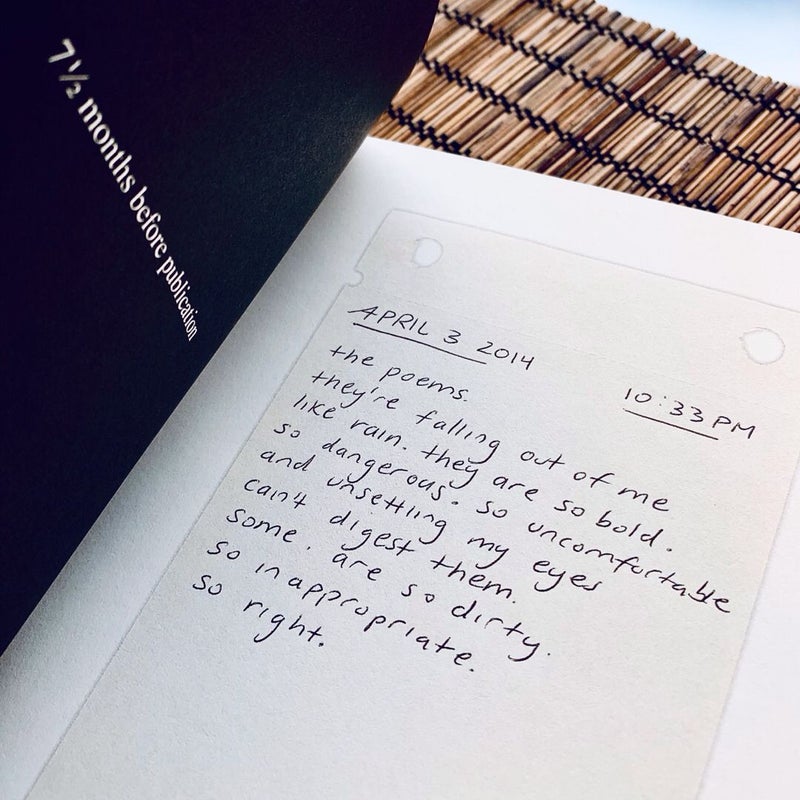 7 ½ months before publication
APRIL 3 2014
10:33 PM
the poems.
they're falling out of me
like rain. they are so bold.
so dangerous. so uncomfortable
and unsettling my eyes
can't digest them.
some. are so dirty.
so inappropriate.
so right.